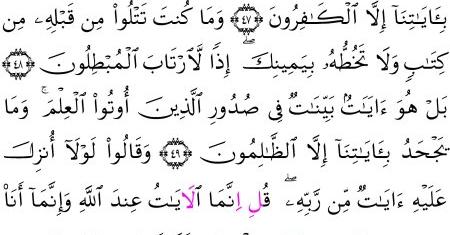 بِـَٔايَٰتِنَآ إِلَّا ٱلْكَٰفِرُونَ ﴿٤٧﴾ وَمَا كُنتَ تَتْلُوا۟ مِن قَبْلِهِۦ مِن
كِتَٰبٍ وَلَا تَخُطُّهُۥ بِيَمِينِكَ ۖ إِذًا لَّٱرْتَابَ ٱلْمُبْطِلُونَ ﴿٤٨﴾
بَلْ هُوَ ءَايَٰتٌۢ بَيِّنَٰتٌ فِى صُدُورِ ٱلَّذِينَ أُوتُوا۟ ٱلْعِلْمَ ۚ وَمَا
يَجْحَدُ بِـَٔايَٰتِنَآ إِلَّا ٱلظَّٰلِمُونَ ﴿٤٩﴾ وَقَالُوا۟ لَوْلَآ أُنزِلَ
عَلَيْهِ ءَايَٰتٌ مِّن رَّبِّهِۦ ۖ قُلِ اِنَّمَا ٱلَايَٰتُ عِندَ ٱللَّهِ وَإِنَّمَآ أَنَا۠